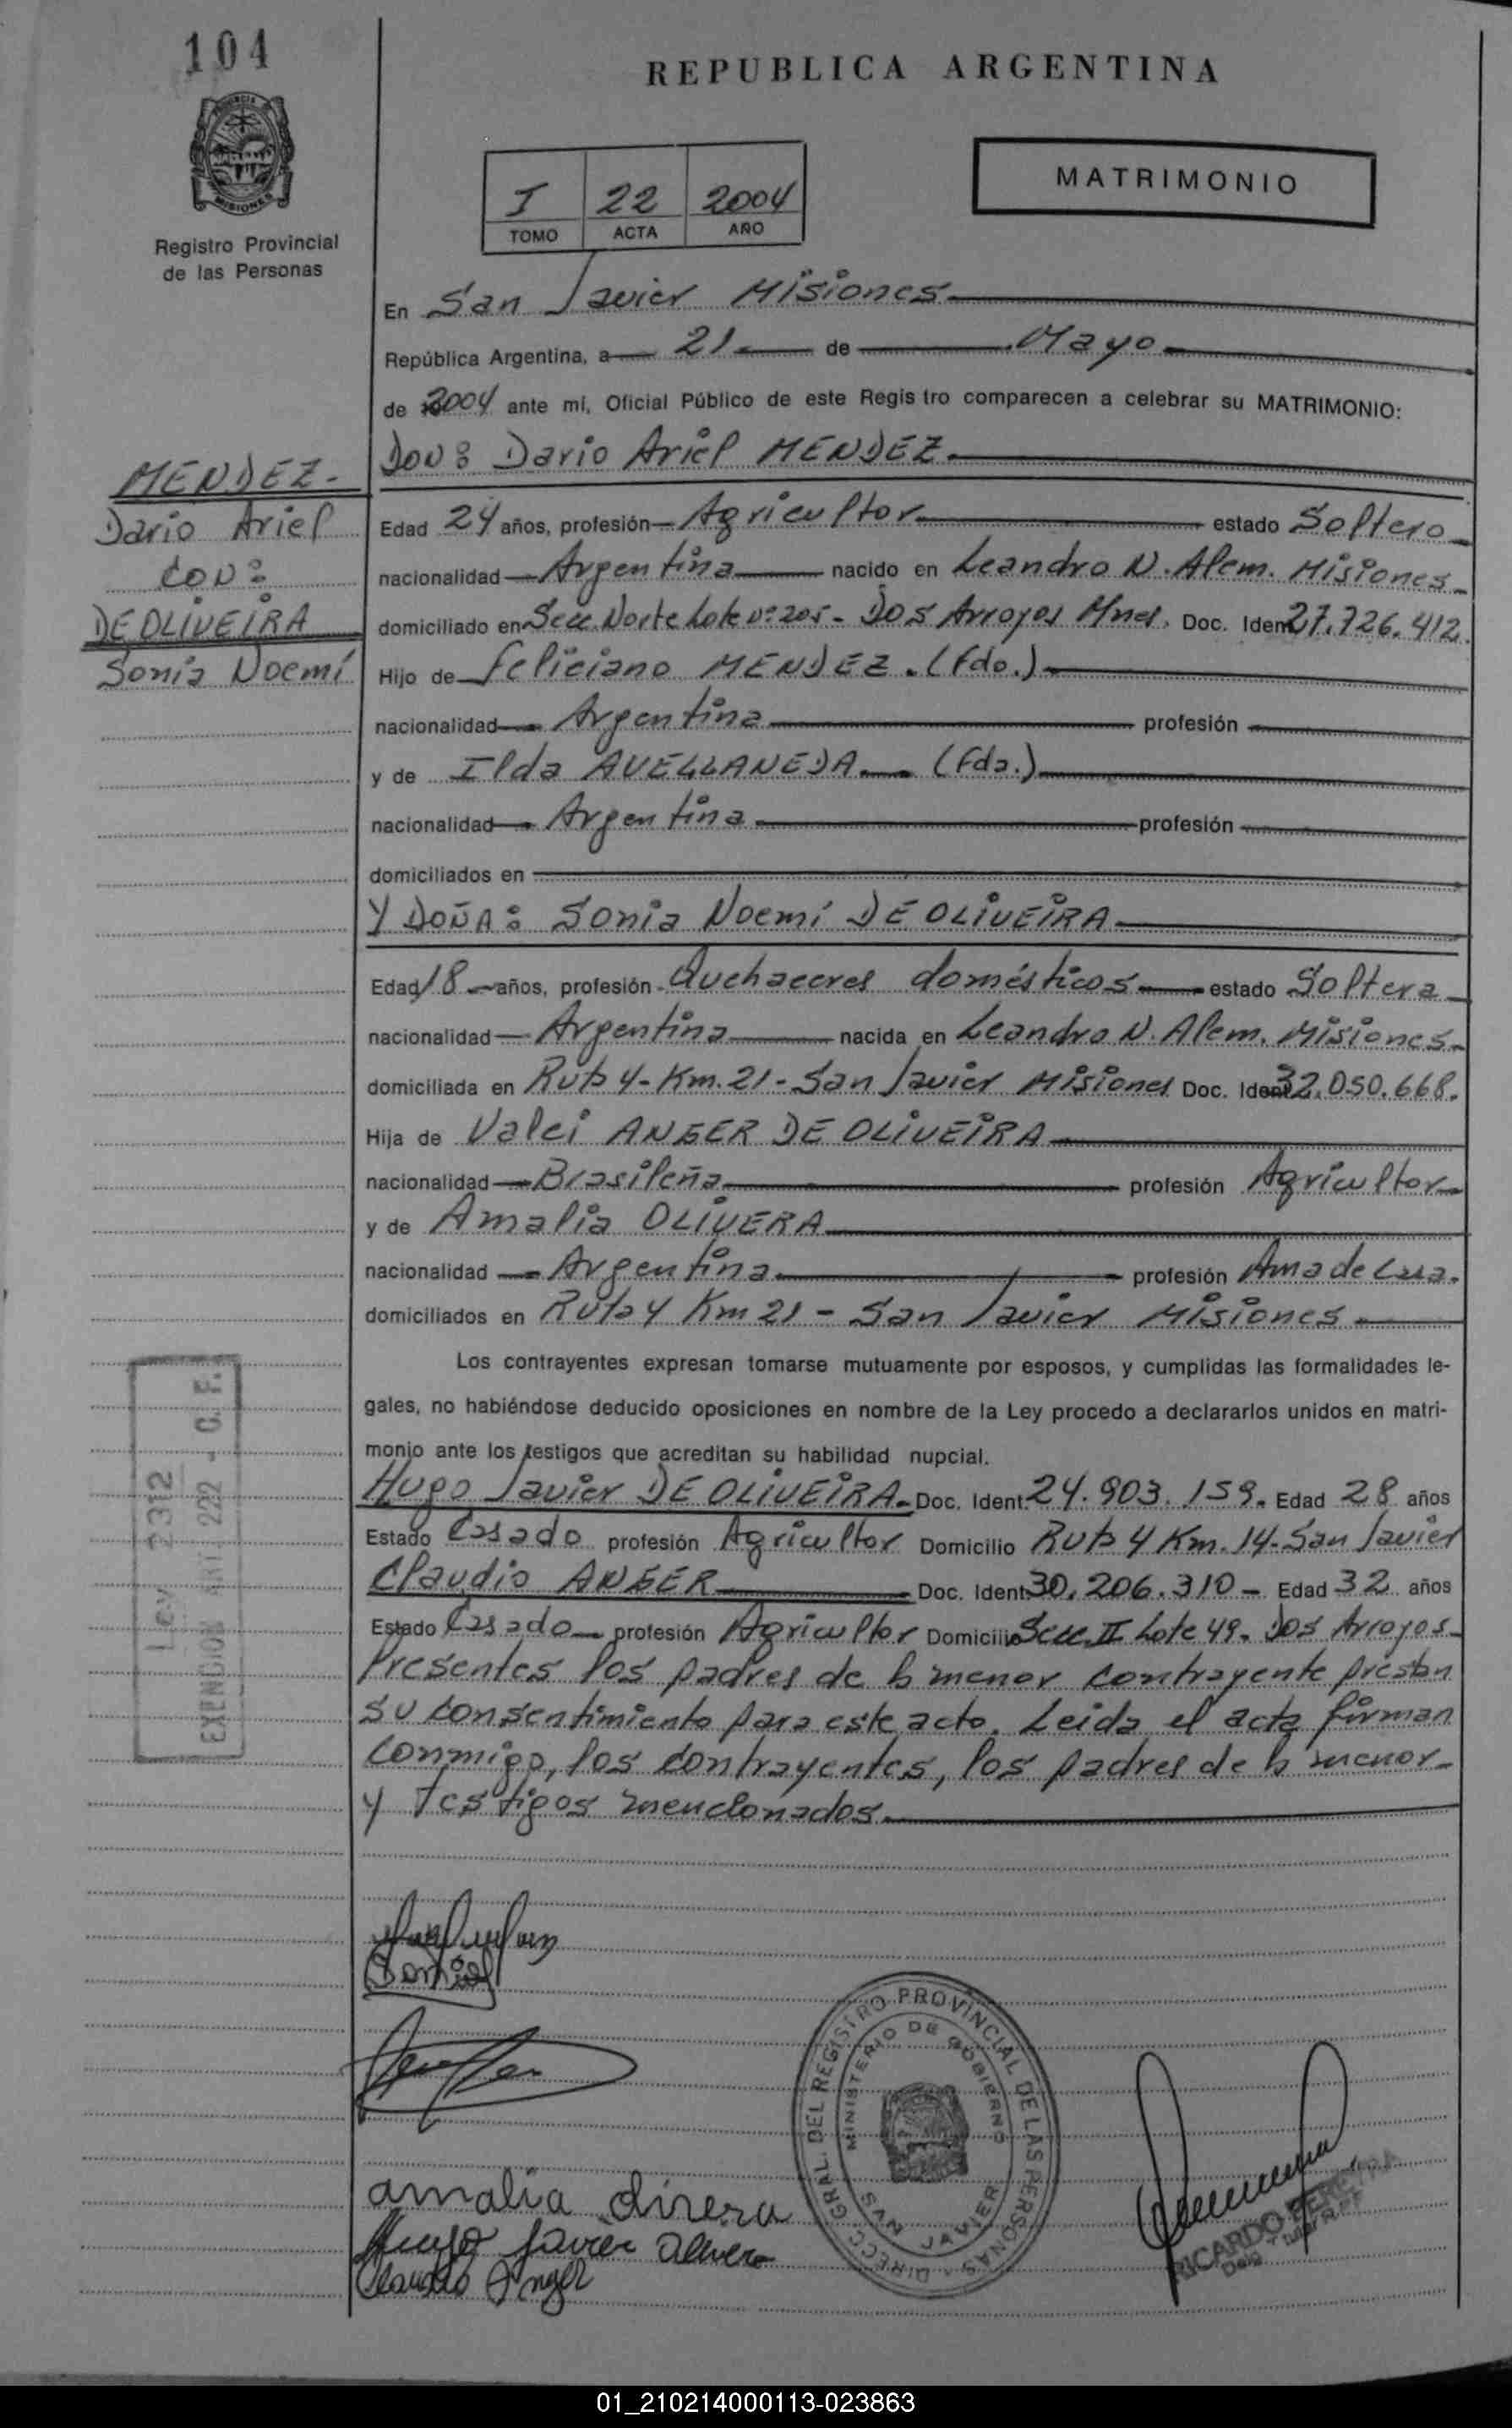 104
REPUBLICA ARGENTINA
PROVINCIA DE
MISIONES
Registro Provincial
de las Personas
I 22 2004
TOMO ACTA AÑO
MATRIMONIO
En San Javier Misiones
República Argentina, a 21 de Mayo
de 2004 ante mí, Oficial Público de este Regis tro comparecen a celebrar su MATRIMONIO:
DON: Dario Ariel MENDEZ
MENDEZ.
Dario Ariel
CON:
DE OLIVEIRA
Sonia Noemí
Edad 24 años, profesión Agricultor estado Soltero
nacionalidad Argentina nacido en Leandro N. Alem. Misiones
domiciliado en Secc. Norte Lote nº 205 - Dos Arroyos Mnes. Doc. Ident 27.726.412.
Hijo de Feliciano MENDEZ. (Fdo.)
nacionalidad Argentina profesión
y de Ilda AVELLANEDA. (Fda.)
nacionalidad Argentina profesión
domiciliados en
Y DOÑA: Sonia Noemí DE OLIVEIRA
Edad 18 años, profesión Quehaceres domésticos estado Soltera
nacionalidad Argentina nacida en Leandro N. Alem. Misiones
domiciliada en Ruta 4 - Km. 21 - San Javier Misiones Doc. Ident 32.050.668.
Hija de Valci ANGER DE OLIVEIRA
nacionalidad Brasileña profesión Agricultor
y de Amalia OLIVERA
nacionalidad Argentina profesión Ama de Casa.
domiciliados en Ruta 4 Km 21 - San Javier Misiones
Los contrayentes expresan tomarse mutuamente por esposos, y cumplidas las formalidades le-
gales, no habiéndose deducido oposiciones en nombre de la Ley procedo a declararlos unidos en matri-
monio ante los testigos que acreditan su habilidad nupcial.
Hugo Javier DE OLIVEIRA. Doc. Ident. 24.903.159. Edad 28 años
Estado Casado profesión Agricultor Domicilio Ruta 4 Km. 14 - San Javier
Claudio ANGER Doc. Ident. 30.206.310 - Edad 32 años
Estado Casado profesión Agricultor Domicilio Secc. II Lote 49. Dos Arroyos
Presentes los padres de la menor contrayente prestan
su consentimiento para este acto. Leida el acta firman
conmigo, los contrayentes, los padres de la menor
y Testigos mencionados.
Ley 2312
EXENCION ART. 222 - C. F.
Sonia
amalia olivera
Hugo Javier Olivera
Claudio Anger
DIRECC. GRAL. DEL REGISTRO PROVINCIAL DE LAS PERSONAS
MINISTERIO DE GOBIERNO
SAN JAVIER
RICARDO PEREYRA
01_210214000113-023863